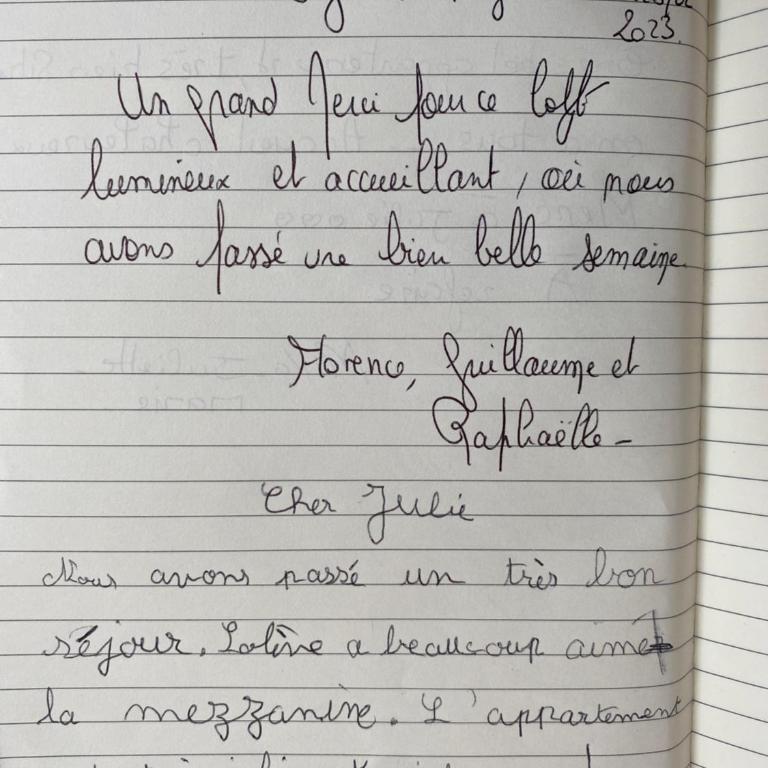 2023.
Un grand Merci pour ce loft
lumineux et accueillant, où nous
avons passé une bien belle semaine.
Florence, Guillaume et
Raphaëlle -
Cher Julie
Nous avons passé un très bon
séjour. Solène a beaucoup aimé
la mezzanine. L'appartement